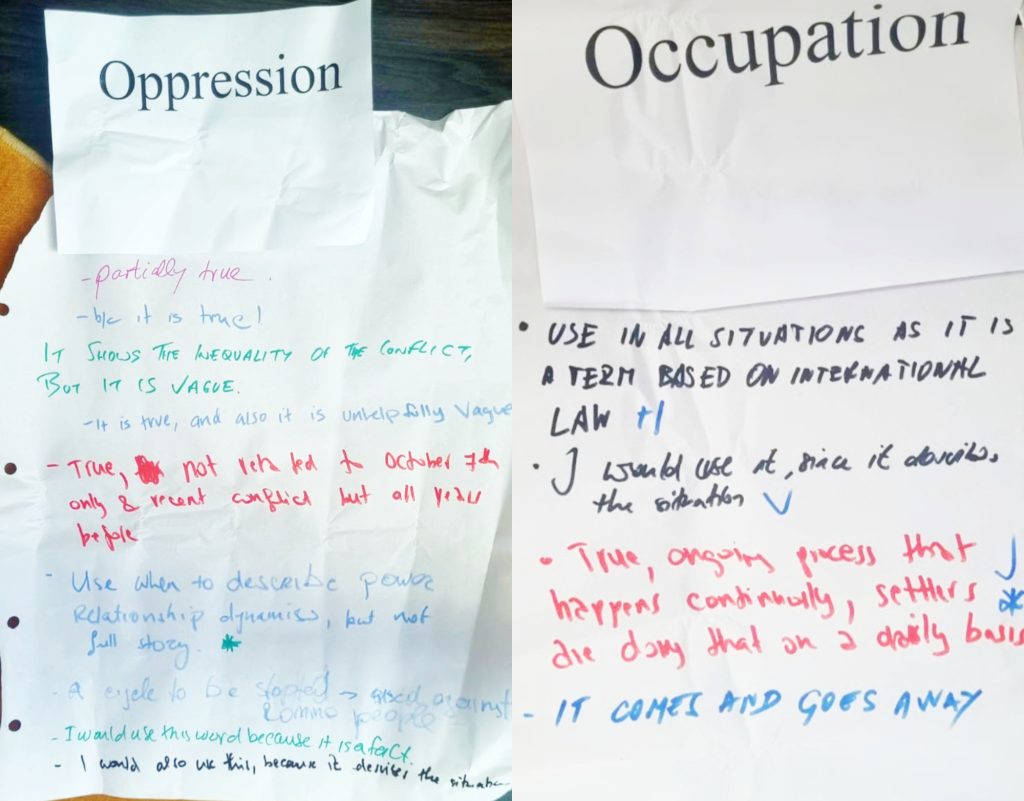 Oppression
- partially true.
- b/c it is true!
IT SHOWS THE INEQUALITY OF THE CONFLICT,
BUT IT IS VAGUE.
- It is true, and also it is unhelpfully vague
- True, not related to October 7th
only & recent conflict but all years
before
- Use when to describe power
relationship dynamics, but not
full story. *
- A cycle to be stopped → used against
people
- I would use this word because it is a fact.
- I would also use this, because it describes the situation
Occupation
• USE IN ALL SITUATIONS AS IT IS
A TERM BASED ON INTERNATIONAL
LAW +1
• I would use it, since it describes
the situation V
• True, ongoing process that
happens continually, settlers *
are doing that on a daily basis
- IT COMES AND GOES AWAY